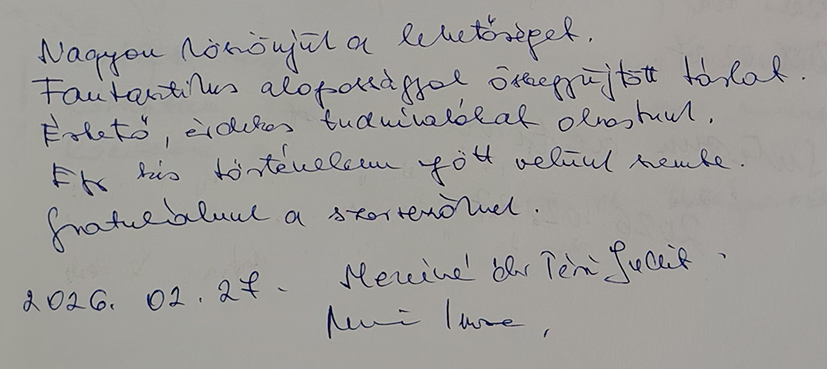 Nagyon köszönjük a lehetőséget.
Fantasztikus alapossággal összegyűjtött tárlat.
Érthető, érdekes tudnivalókat olvastunk.
Egy kis történelem jött velünk szembe.
Gratulálunk a szervezőknek.
2026. 02. 27. dr Judit
Imre